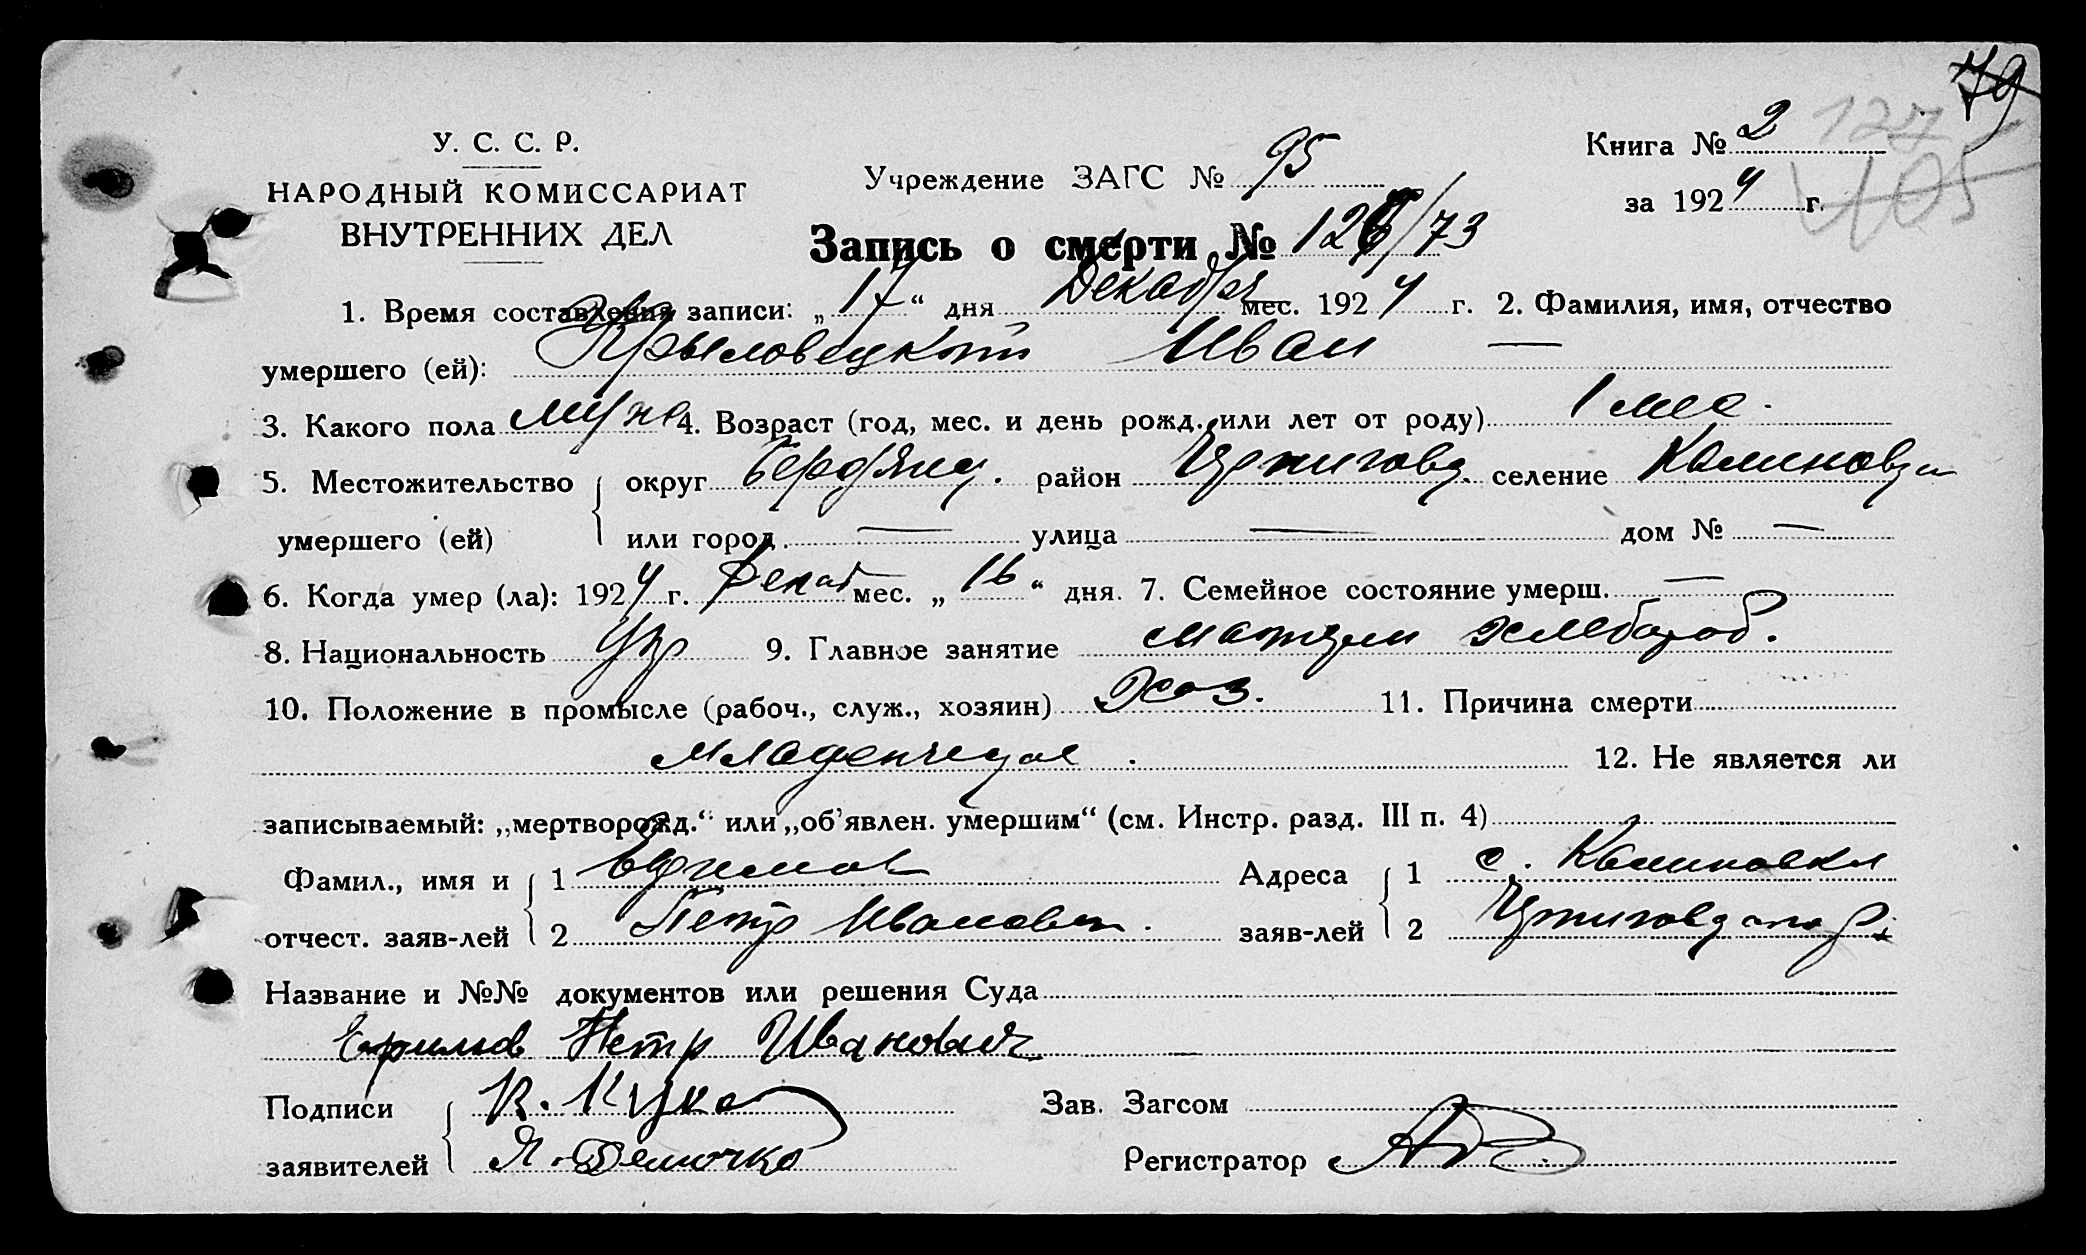 79
У. С. С. Р.
НАРОДНЫЙ КОМИССАРИАТ
ВНУТРЕННИХ ДЕЛ
Учреждение ЗАГС № 95
Книга № 2
127
105
за 1924 г.
Запись о смерти № 126/73
1. Время составления записи: „17“ дня Декабря мес. 1924 г. 2. Фамилия, имя, отчество
умершего (ей): Крыловецкий Иван —
3. Какого пола муж 4. Возраст (год, мес. и день рожд. или лет от роду) 1 мес.
5. Местожительство округ Бердянс. район Черниговс. селение Калиновка
умершего (ей) или город — улица — дом № —
6. Когда умер (ла): 1924 г. Декаб мес. „16“ дня. 7. Семейное состояние умерш. —
8. Национальность Укр 9. Главное занятие матери хлебороб.
10. Положение в промысле (рабоч., служ., хозяин) Хоз. 11. Причина смерти
младенческая. 12. Не является ли
записываемый: „мертворожд.“ или „об'явлен. умершим“ (см. Инстр. разд. III п. 4)
Фамил., имя и 1 Ефимов Адреса 1 с. Калиновка
отчест. заяв-лей 2 Петр Иванович. заяв-лей 2 Черниговского р.
Название и №№ документов или решения Суда
Ефимов Петр Иванович
Подписи К. Кука Зав. Загсом
заявителей Я. Демочко Регистратор